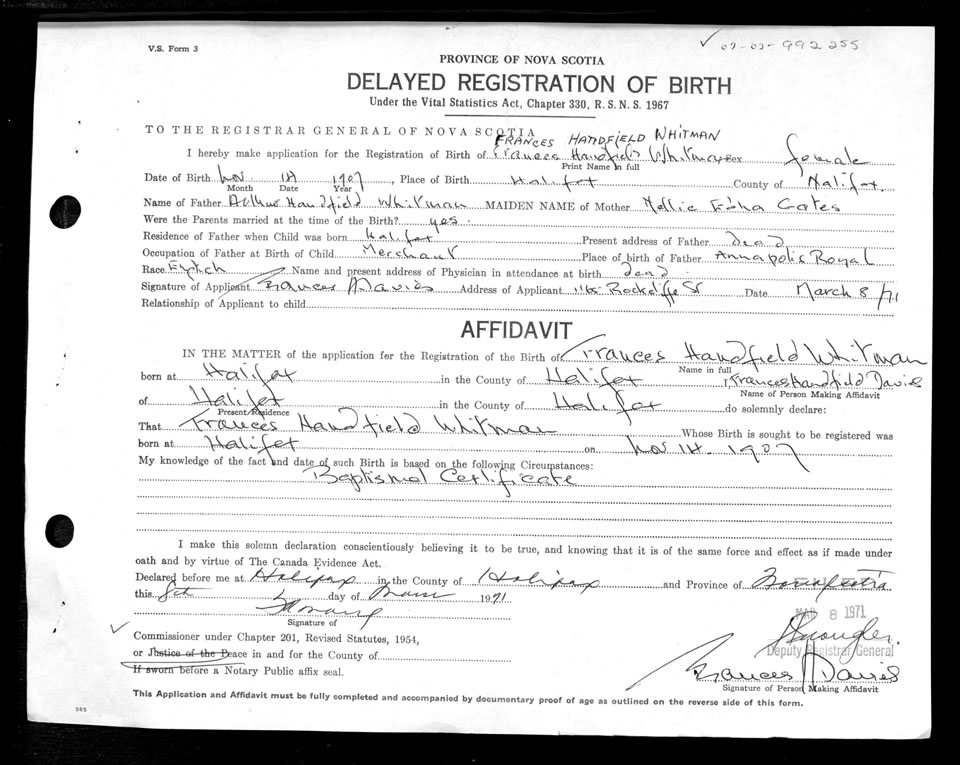 V.S. Form 3
✓ 07-02-992255
PROVINCE OF NOVA SCOTIA
DELAYED REGISTRATION OF BIRTH
Under the Vital Statistics Act, Chapter 330, R.S.N.S. 1967
TO THE REGISTRAR GENERAL OF NOVA SCOTIA
FRANCES HANDFIELD WHITMAN
I hereby make application for the Registration of Birth of Frances Handfield Whitman Sex female
Print Name in full
Date of Birth Nov 14 1907, Place of Birth Halifax County of Halifax.
Month Date Year
Name of Father Arthur Handfield Whitman MAIDEN NAME of Mother Nellie Edna Gates
Were the Parents married at the time of the Birth? yes.
Residence of Father when Child was born Halifax Present address of Father dead
Occupation of Father at Birth of Child Merchant Place of birth of Father Annapolis Royal
Race Name and present address of Physician in attendance at birth dead
Signature of Applicant Frances Davies Address of Applicant Rockcliffe St Date March 8/71
Relationship of Applicant to child
AFFIDAVIT
IN THE MATTER of the application for the Registration of the Birth of Frances Handfield Whitman
Name in full
born at Halifax in the County of Halifax I, Frances Handfield Davies
Name of Person Making Affidavit
of Halifax in the County of Halifax do solemnly declare:
Present Residence
That Frances Handfield Whitman Whose Birth is sought to be registered was
born at Halifax on Nov 14. 1907
My knowledge of the fact and date of such Birth is based on the following Circumstances:
Baptismal Certificate
I make this solemn declaration conscientiously believing it to be true, and knowing that it is of the same force and effect as if made under
oath and by virtue of The Canada Evidence Act.
Declared before me at Halifax in the County of Halifax and Province of Nova Scotia
this 8th day of 1971
MAR 8 1971
Signature of
✓ Commissioner under Chapter 201, Revised Statutes, 1954,
or Justice of the Peace in and for County of
Deputy Registrar General
If sworn before a Notary Public affix seal.
Frances Davies
Signature of Person Making Affidavit
This Application and Affidavit must be fully completed and accompanied by documentary proof of age as outlined on the reverse side of this form.
565